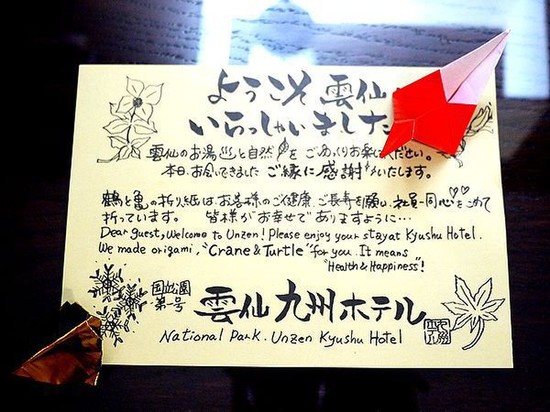 ようこそ 雲仙
いらっしゃいました
雲仙のお湯と自然をごゆっくりお楽しみください。
本日、お会いできましたご縁に感謝いたします。
鶴と亀の折り紙はお客様のご健康、ご長寿を願い、社員一同心をこめて
折っています。 皆様がお幸せでありますように…
Dear guest, Welcome to Unzen! Please enjoy your stay at Kyushu Hotel.
We made origami, "Crane & Turtle" for you. It means
"Health & Happiness"!
国立公園
第一号
雲仙 九州ホテル
National Park. Unzen Kyushu Hotel